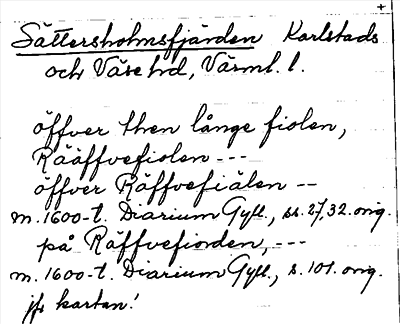 Sättersholmsfjärden Karlstads
och Väse hd, Värml. l.
öffver then långe fiolen,
Rääffvefiolen ---
öffver Räffvefiälen --
m. 1600-t. Diarium Gyll., ss. 27, 32. orig.
på Räffvefiorden, ---
m. 1600-t. Diarium Gyll., s. 101. orig.
jfr kartan!